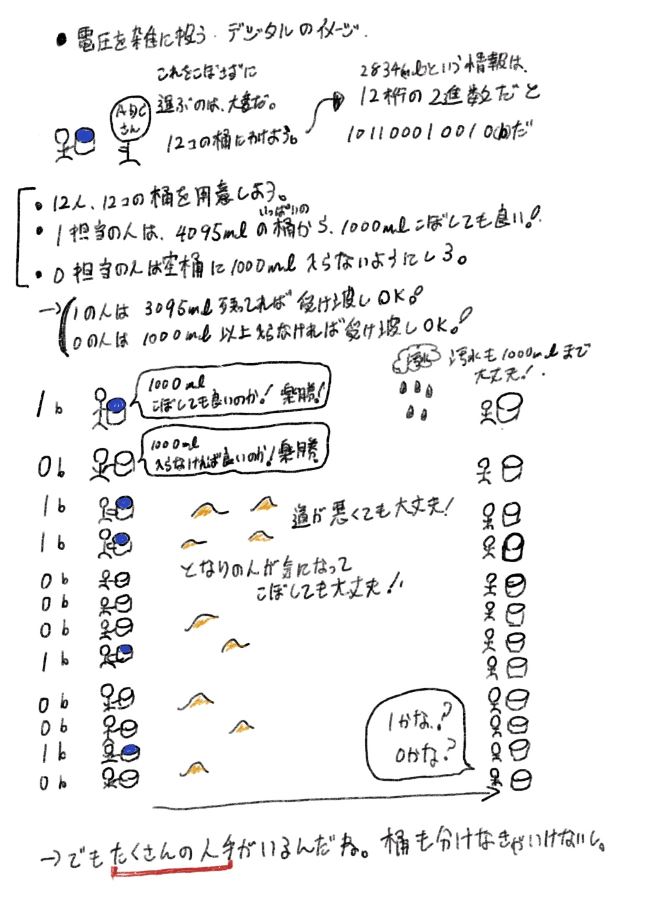 ● 電圧を雑に扱う デジタルのイメージ.
これをこぼさずに
運ぶのは、大変だ。
12コの桶にわけよう。
ADC
さん
2834mlという情報は、
12桁の2進数だと
101100010010bだ
• 12人、12コの桶を用意しよう。
• 1担当の人は、4095mlのいっぱいの桶から、1000mlこぼしても良い!
• 0担当の人は空桶に1000ml入らないようにしろ。
→ 1の人は 3095ml残ってれば 受け渡しOK!
0の人は 1000ml以上入らなければ受け渡しOK!
汚水
汚水も1000mlまで
大丈夫!
1b
1000ml
こぼしても良いのか! 楽勝!
0b
1000ml
入らなければ良いのか! 楽勝!
1b
道が悪くても大丈夫!
1b
となりの人が気になって
こぼしても大丈夫!
0b
0b
0b
1b
0b
0b
1b
0b
1かな?
0かな?
→でもたくさんの人手がいるんだね。桶も分けなきゃいけないし。